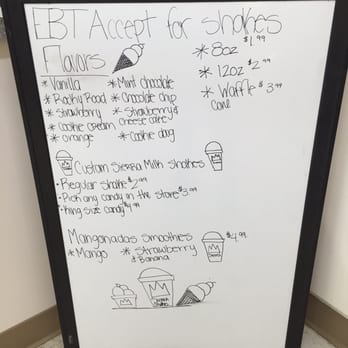 EBT Accept for shakes
Flavors
* Vanilla
* Rocky Road
* Strawberry
* Cookie cream
* orange
* Mint chocolate
* Chocolate chip
* Strawberry & cheese cake
* Cookie doug
* 8oz $1.99
* 12oz $2.99
* Waffle cone $3.99
Custom Sierra Milk shakes
• Regular shake $2.99
• Pick any candy in the store $3.99
• King size candy $4.99
Mangonadas smoothies $4.99
* Mango
* Strawberry & Banana